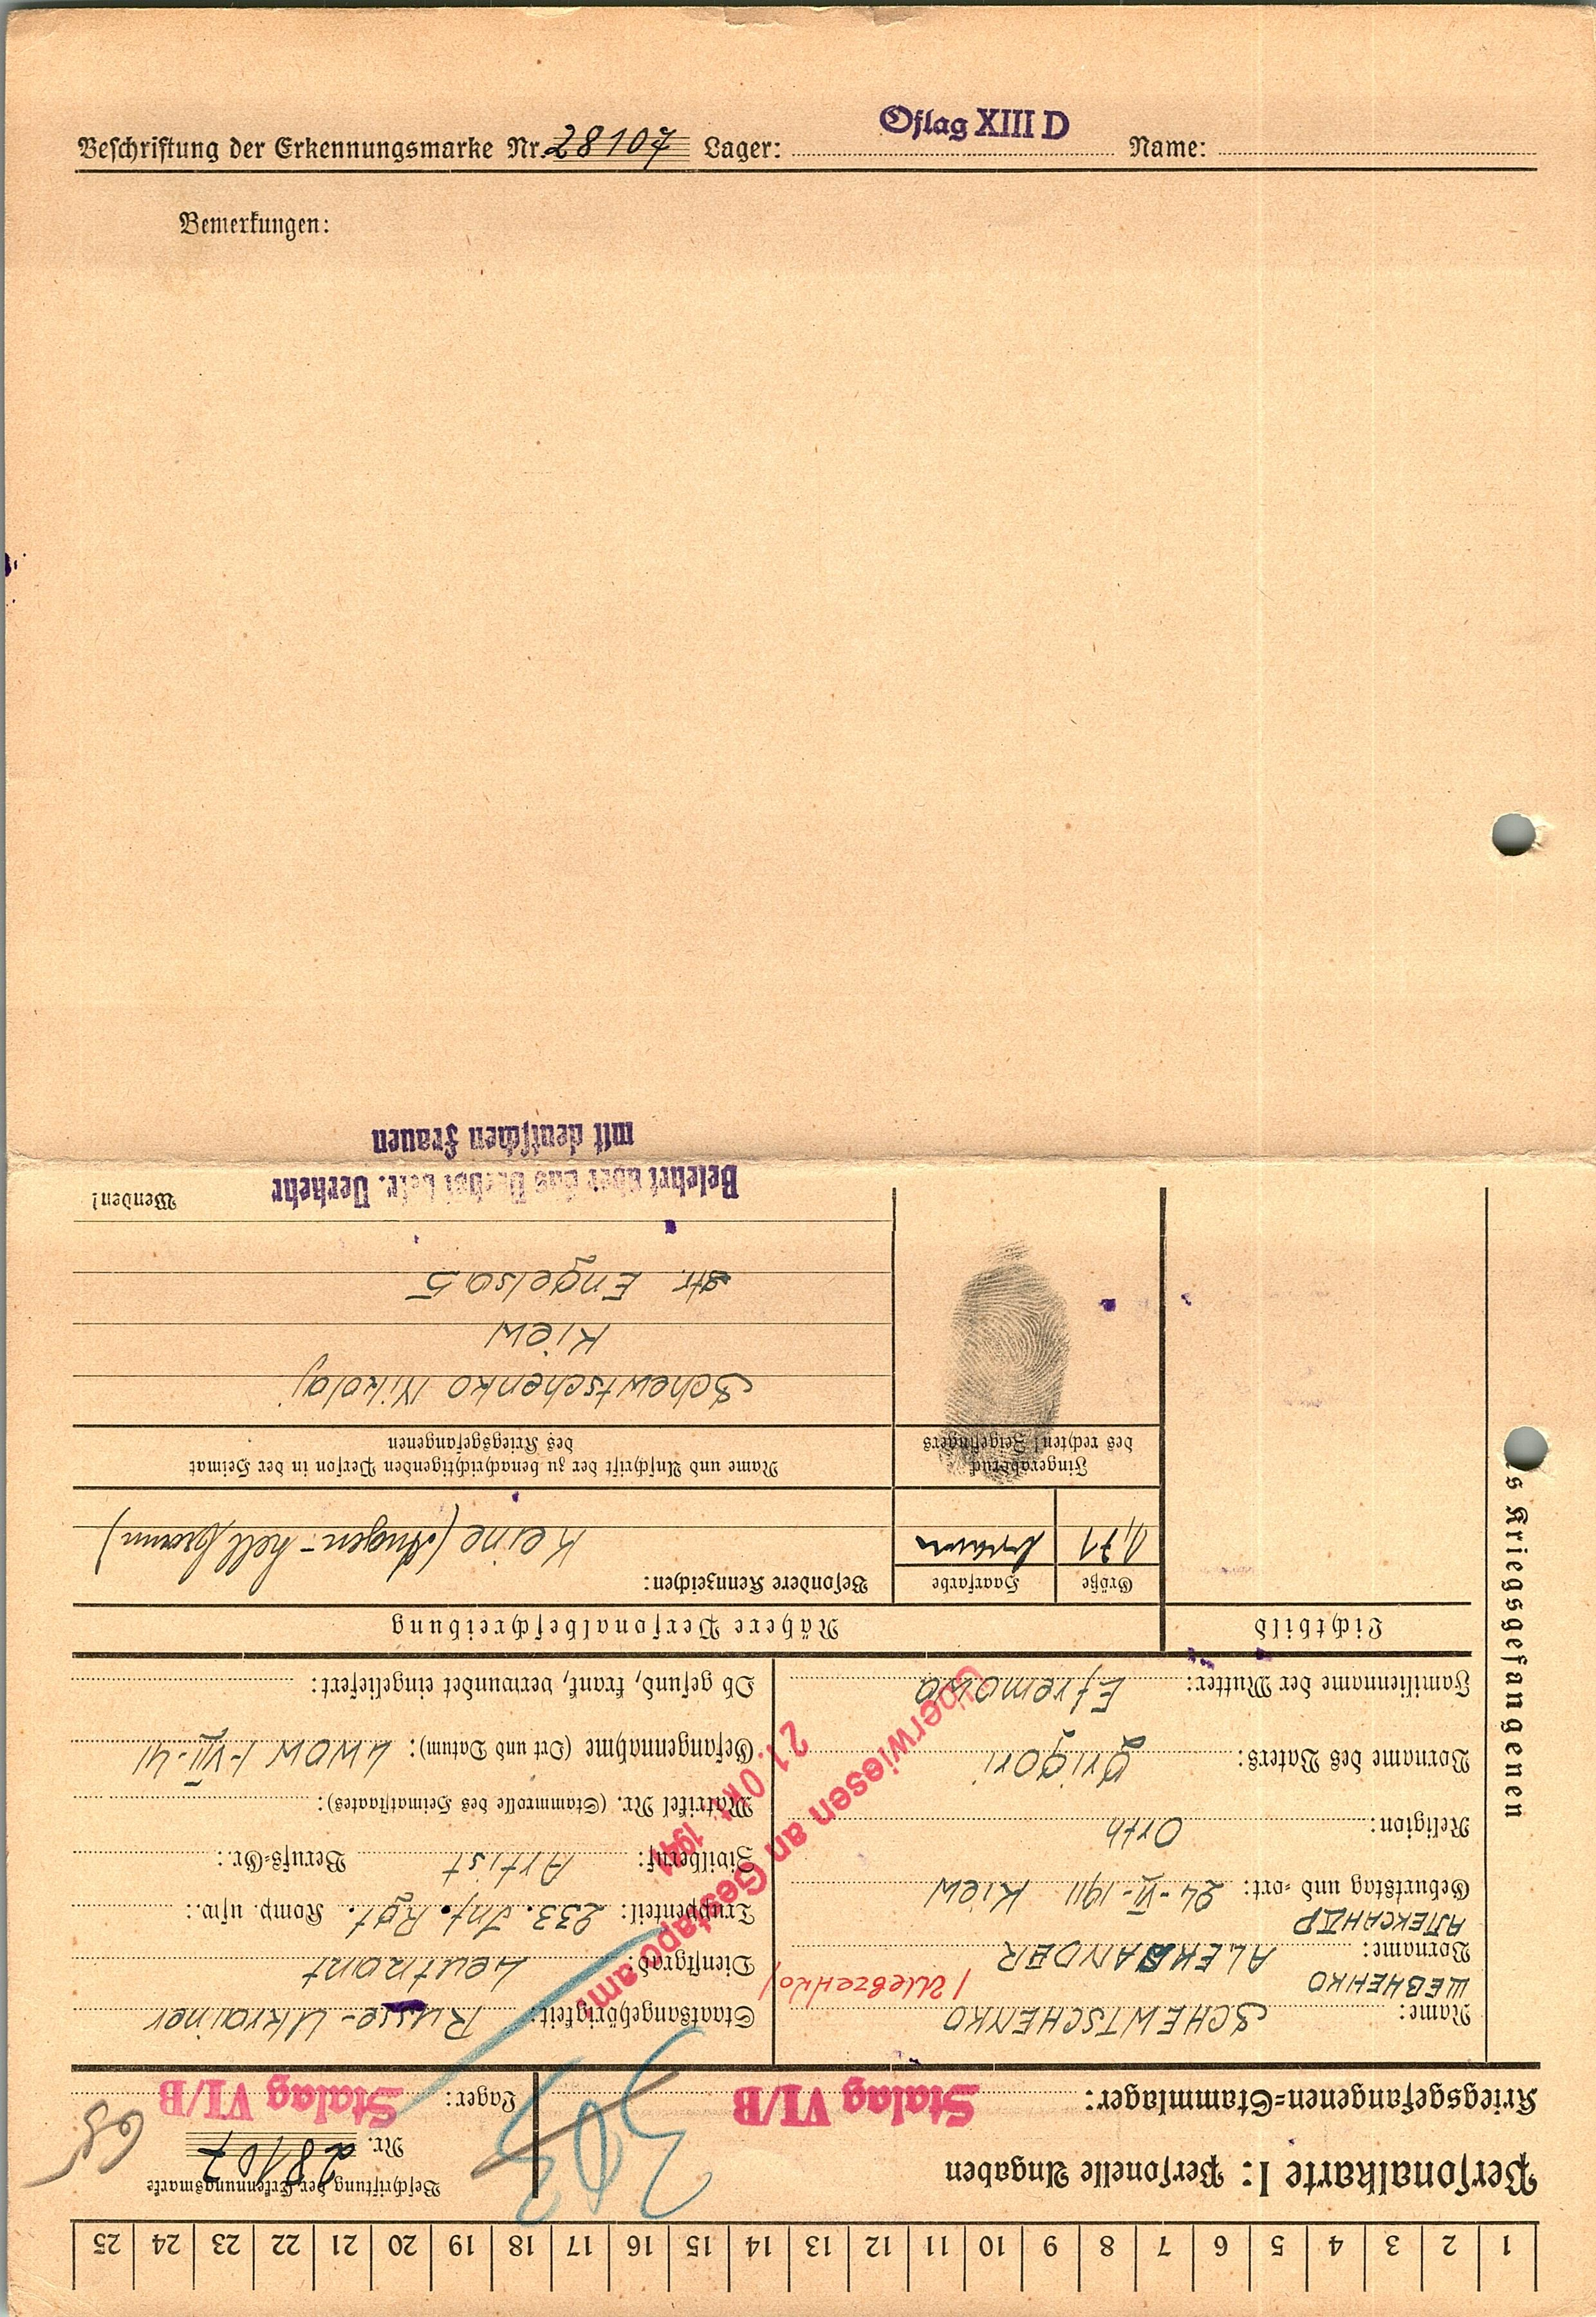 Beschriftung der Erkennungsmarke Nr. 28107 Lager: Oflag XIII D Name:
Bemerkungen:
1 2 3 4 5 6 7 8 9 10 11 12 13 14 15 16 17 18 19 20 21 22 23 24 25
Personalkarte I: Personelle Angaben
Beschriftung der Erkennungsmarke
Nr. 28107
Kriegsgefangenen-Stammlager: Stalag VI/B
Lager: Stalag VI/B
303
68
des Kriegsgefangenen
Name: SCHEWTSCHENKO
ШЕВЧЕНКО
Vorname: ALEKSANDER
АЛЕКСАНДР
Geburtstag und -ort: 24-VI-1911 Kiew
Religion: Orth
Vorname des Vaters: Grigori
Familienname der Mutter: Efremowa
Staatsangehörigkeit: Russe-Ukrainer
Dienstgrad: Leutnant
Truppenteil: 233. Inf. Rgt. Komp. usw.:
Zivilberuf: Artist Berufs-Gr.:
Matrikel Nr. (Stammrolle des Heimatstaates):
Gefangennahme (Ort und Datum): Lwow 1-VII-41
Ob gesund, krank, verwundet eingeliefert:
Überwiesen an Gestapo am:
21. Okt. 1941
Lichtbild
Nähere Personalbeschreibung
Größe
1,71
Haarfarbe
braun
Besondere Kennzeichen:
Keine (Augen - hell braun)
Fingerabdruck
des rechten! Zeigefingers
Name und Anschrift der zu benachrichtigenden Person in der Heimat
des Kriegsgefangenen
Schewtschenko Nikolaj
Kiew
str. Engelsa 5
Wenden!
Belehrt über das Verbot betr. Verkehr
mit deutschen Frauen